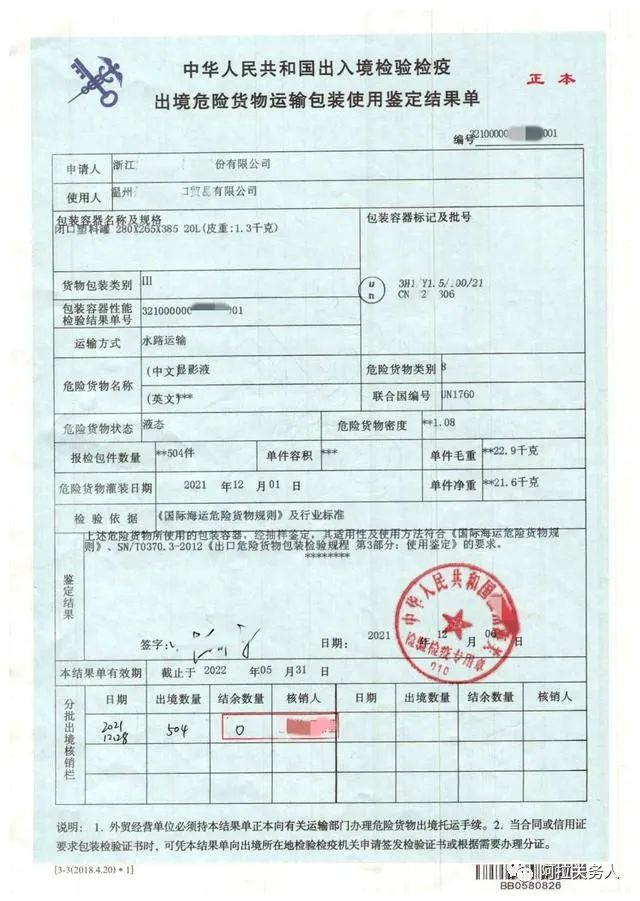 中华人民共和国出入境检验检疫
出境危险货物运输包装使用鉴定结果单
正本
编号 321000001
申请人 浙江 份有限公司
使用人 温州 口贸易有限公司
包装容器名称及规格
闭口塑料罐 280X265X385 20L(皮重:1.3千克)
包装容器标记及批号
un
3H1/Y1.5/ 00/21
CN 306
货物包装类别 III
包装容器性能检验结果单号 321000000 001
运输方式 水路运输
危险货物名称
(中文)显影液
(英文)***
危险货物类别 8
联合国编号 UN1760
危险货物状态 液态
危险货物密度 **1.08
报检包件数量 **504件
单件容积 ***
单件毛重 **22.9千克
危险货物灌装日期 2021 年 12 月 01 日
单件净重 **21.6千克
检验依据 《国际海运危险货物规则》及行业标准
鉴定结果
上述危险货物所使用的包装容器，经抽样鉴定，其适用性及使用方法符合《国际海运危险货物规
则》、SN/T0370.3-2012《出口危险货物包装检验规程 第3部分：使用鉴定》的要求。
********
签字：
日期： 2021 年 12 月 06 日
中华人民共和国
检验检疫专用章
010
本结果单有效期 截止于 2022 年 05 月 31 日
分批出境核销栏
日期 出境数量 结余数量 核销人 日期 出境数量 结余数量 核销人
2021 12.28 504 0
说明：1．外贸经营单位必须持本结果单正本向有关运输部门办理危险货物出境托运手续。2．当合同或信用证
要求包装检验证书时，可凭本结果单向出境所在地检验检疫机关申请签发检验证书或根据需要办理分证。
[3-3(2018.4.20)•1]
BB0580826
阿拉关务人